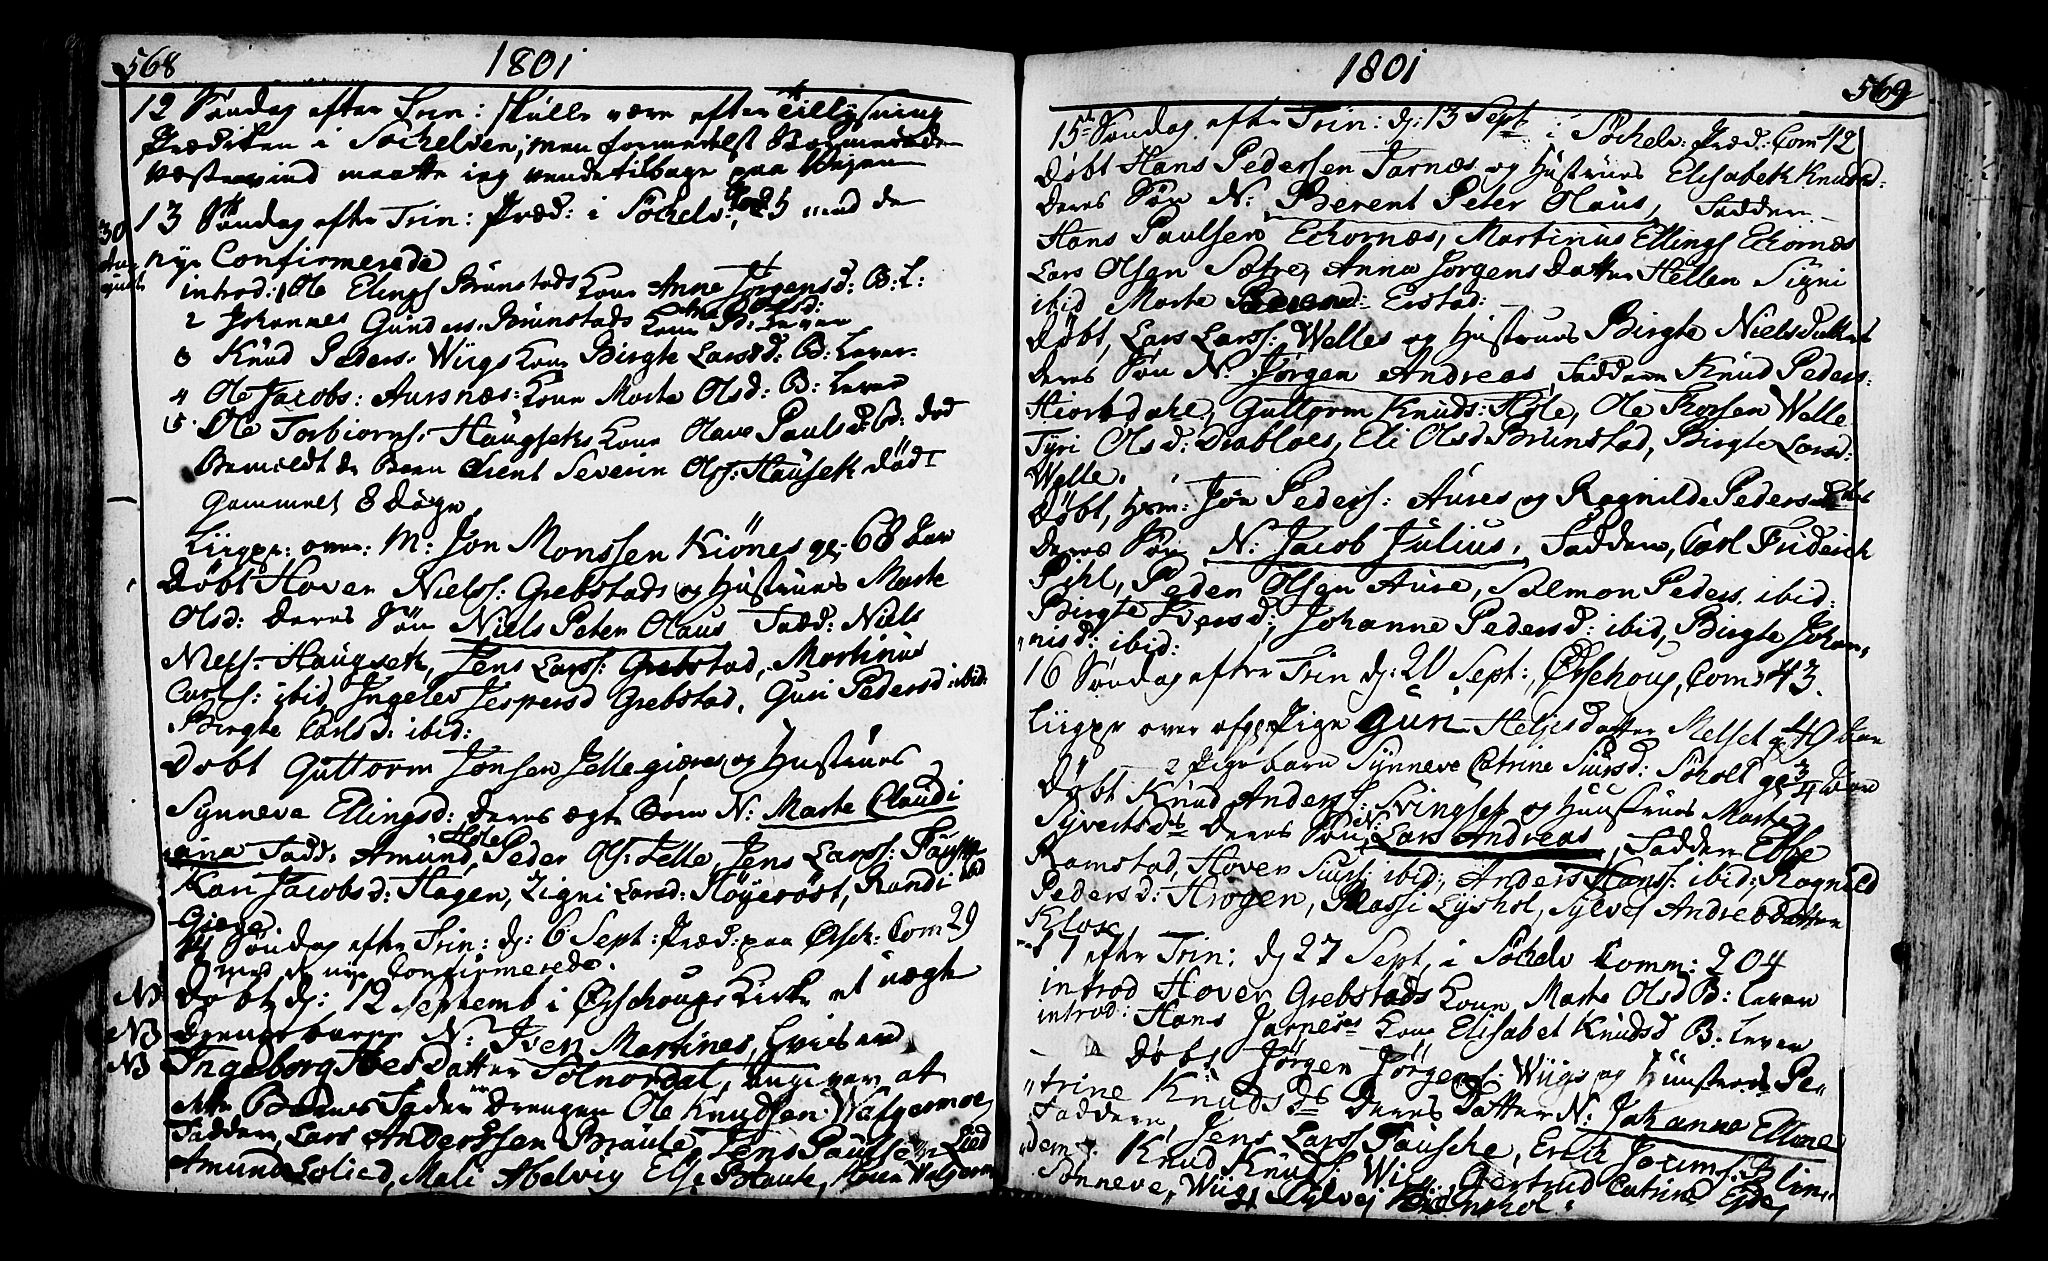 568
1801
12 Søndag efter Trin: skulle være efter Tillysning
Prædiken i Sochelven, men formedelst Stormende
Væstenvind maatte ieg vende tilbage paa Veyen
30
13 Søndag efter Trin: Præd: i Sochelv: 25 med de
nye Confirmerede
introd: 1 Ole Elings Brunstads Kone Anne Jørgensd: B: L:
2 Johannes Gunders: Brunstads Kone Olsd: B: Lever
3 Knud Peders: Wiigs Kone Birgte Larsd: B: Lever
4 Ole Jacobs: Aursnæs: Kone Marte Olsd: B: Lever
5 Ole Torbiørns: Haugseks Kone Olave Paulsd: B: død
Bemeldte Barn Severin Ols: Haugsek død
gammel 8 Dage
Liigpr: over: M: Jon Monssen Kiönes g: 68 Aar
Døbt Hover Niels: Grebstads og Hustrues Marte
Olsd: Deres Søn Niels Peter Olaus Fadd: Niels
Niels: Haugsek, Jens Larss: Grebstad, Martinus
Carls: ibid, Ingelev Jespersd Grebstad, Guri Pedersd: ibid:
Birgte Carlsd: ibid:
Døbt Guttorm Jonsen Jelle og Hustrues
Synneve Ellingsd: Deres ægte Barn N: Marte Claudi
ana Fadd: Amund Hole, Peder Ols: Jelle, Jens Larss: Fauske
Kari Jacobsd: Hagen, Zigni Larsd: Høyeröst, Randi
Giære
14 Søndag efter Trin: d: 6 Sept: Præd: paa Ørsch: Com 29
med de nye Confirmerede.
NB Døbt d: 12 Septemb i Ørschougs Kirke et uægte
NB Drengebarn N: Iven Martines, Hvis
NB Ingeborg Ives Datter Solnordal, angiver at
Barnets Fader er Drengen Ole Knudsen Walgermoe
Faddere, Lars Anderssen Braute, Jens Paulsen Lied
Amund Lolied, Mali Abelvig Else Braute, Walgerm
1801
569
15de Søndag efter Trin: d: 13 Sept: i Sochelv: Præd: Com 42
Døbt Hans Pedersen Jarnæs og Hustrues Elisabeth Knudsd:
Deres Søn N: Berent Peter Olaus, Faddere
Hans Paulsen Eckornæs, Martinus Ellings Eckornæs
Lars Olsen Sætre, Anna Jørgens Datter Hellen Signi
ibid Marte Erstad:
Døbt, Lars Larss: Welles og Hustrues Birgte Nielsdatters
Deres Søn N: Jørgen Andreas, Faddere Knud Peders:
Hiortdahl, Guttorm Knuds: Hole, Ole Welle
Tyri Olsd: Drabløes, Eli Olsd Brunstad, Birgte Larsd:
Welle.
Døbt, Jon Peders: Aures og Ragnilde Peders datters
Deres Søn N: Jacob Julius. Faddere, Carl Friderich
Pihl, Peder Olsen Aure, Salmon Peders. ibid:
Birgte Iversd, Johanne Pedersd: ibid, Birgte Johan-
nisd: ibid:
16 Søndag efter Trin d: 20 Sept: Ørschoug, Com: 43.
Liigpr over Pige Guri Heljes datter Melset g: 40 Aar
2 Pige barn Synneve Catrine Siursd: Søholt g: 3/4 Aar
Døbt Knud Anders: Svingset og Huustrues Marte
Syvertsds Deres Søn N: Lars Andreas, Faddere Ebbe
Ramstad, Hover Siurs: ibid:, Anders Hans: ibid: Ragnild
Pedersd: Hrogen, Massi Lyshol, Sylvej Andreæ datter
Klose
17 efter Trin: d 27 Sept, i Sochelv Comm: 204
introd Hover Grebstads Kone Marte Olsd B: Lever
introd: Hans Jarnes Kone Elisabet Knudsd B: Lever
Døbt Jørgen Jørgens: Wiigs og Huustrues Pe-
trine Knudsds Deres Datter N: Johanna Elline
Faddere, Jens Larss Fausche, Erich Joen: Blin-
dem, Knud Knuds: Wiig, Gertrud Catrine Eyde,
Sønneve Wiig, Sylvej